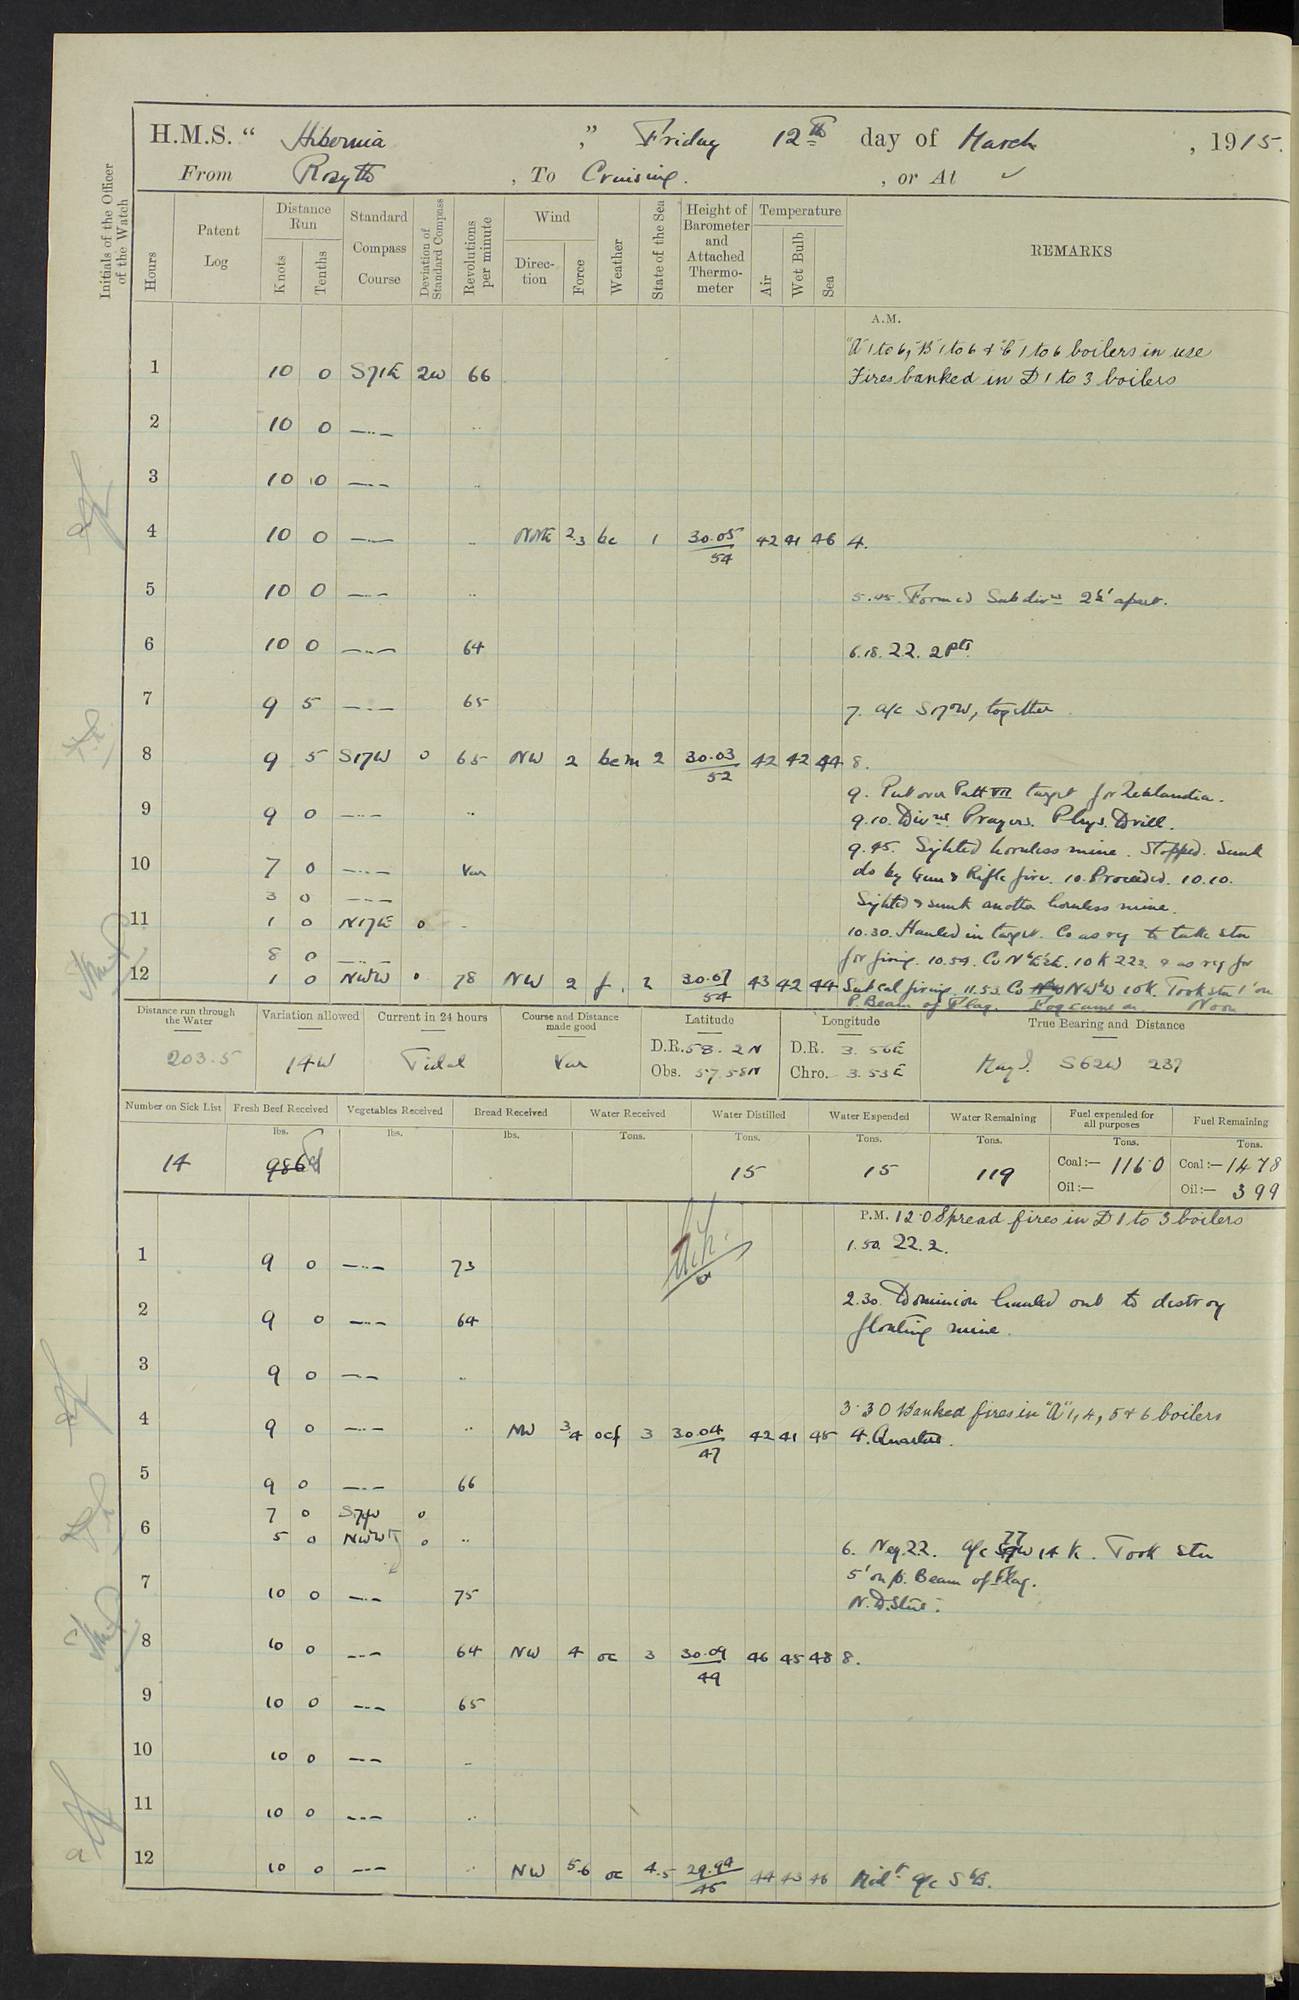 H.M.S. “ Hibernia ” Friday 12th day of March , 1915.
From Rosyth , To Cruising. , or At ✓
Initials of the Officer of the Watch
Hours
Patent Log
Distance Run
Knots
Tenths
Standard Compass Course
Deviation of Standard Compass
Revolutions per minute
Wind
Direc-tion
Force
Weather
State of the Sea
Height of Barometer and Attached Thermo-meter
Temperature
Air
Wet Bulb
Sea
REMARKS
A.M.
"A" 1 to 6, "B" 1 to 6 & "C" 1 to 6 boilers in use
1 10 0 S71E 2W 66 Fires banked in D 1 to 3 boilers
2 10 0 —..— ..
3 10 0 —..— ..
4 10 0 —..— .. NNE 2.3 bc 1 30.05/54 42 41 46 4.
5 10 0 —..— .. 5.45. Formed Subdivns 2½' apart.
6 10 0 —..— 64 6.18. 22. 2 pts.
7 9 5 —..— 65 7. a/c S17W, together
8 9 5 S17W 0 65 NW 2 bcm 2 30.03/52 42 42 44 8.
9. Put over Patt VII target for Zealandia.
9 9 0 —..— .. 9.10. Divns. Prayers. Phys. Drill.
9.45. Sighted hornless mine. Stopped. Sunk
10 7 0 —..— Var do by Gun & Rifle fire. 10. Proceeded. 10.10.
3 0 —..— Sighted & sunk another hornless mine.
11 1 0 N17E 0 .. 10.30. Hauled in target. Co as req to take stn
8 0 —..— for firing. 10.54. Co N 10K 222 & as req for
12 1 0 NWbW 0 78 NW 2 f. 2 30.07/54 43 42 44 Sub Cal firing. 11.53. Co NWbW 10K. Took stn 1' on
P. Beam of Flag. Fog came on. Noon
Distance run through the Water
Variation allowed
Current in 24 hours
Course and Distance made good
Latitude
Longitude
True Bearing and Distance
203.5 14W Tidal Var D.R. 58. 2N D.R. 3. 50E May I. S62W 237
Obs. 57.58N Chro. 3.53E
Number on Sick List
Fresh Beef Received
Vegetables Received
Bread Received
Water Received
Water Distilled
Water Expended
Water Remaining
Fuel expended for all purposes
Fuel Remaining
lbs. lbs. lbs. Tons. Tons. Tons. Tons. Tons. Tons.
14 986 15 15 119 Coal:— 116·0 Coal:— 1478
Oil:— Oil:— 399
P.M. 12·0 Spread fires in D 1 to 3 boilers
1.50. 22.2.
1 9 0 —..— 73
2.30. Dominion hauled out to destroy
2 9 0 —..— 64 floating mine.
3 9 0 —..— ..
3·30 Banked fires in "A" 1, 4, 5 & 6 boilers
4 9 0 —..— .. NW 3/4 ocf 3 30.04/47 42 41 45 4. Quarters.
5 9 0 —..— 66
7 0 0
6 5 0 NWbW 0 .. 6. Neg. 22. a/c S77W 14 K. Took stn
5' on p. Beam of Flag.
7 10 0 —..— 75 N. D. Stns.
8 10 0 —..— 64 NW 4 oc 3 30.09/49 46 45 48 8.
9 10 0 —..— 65
10 10 0 —..— ..
11 10 0 —..— ..
12 10 0 —..— .. NW 5.6 oc 4.5 29.94/45 44 43 46 Midt a/c SbE.